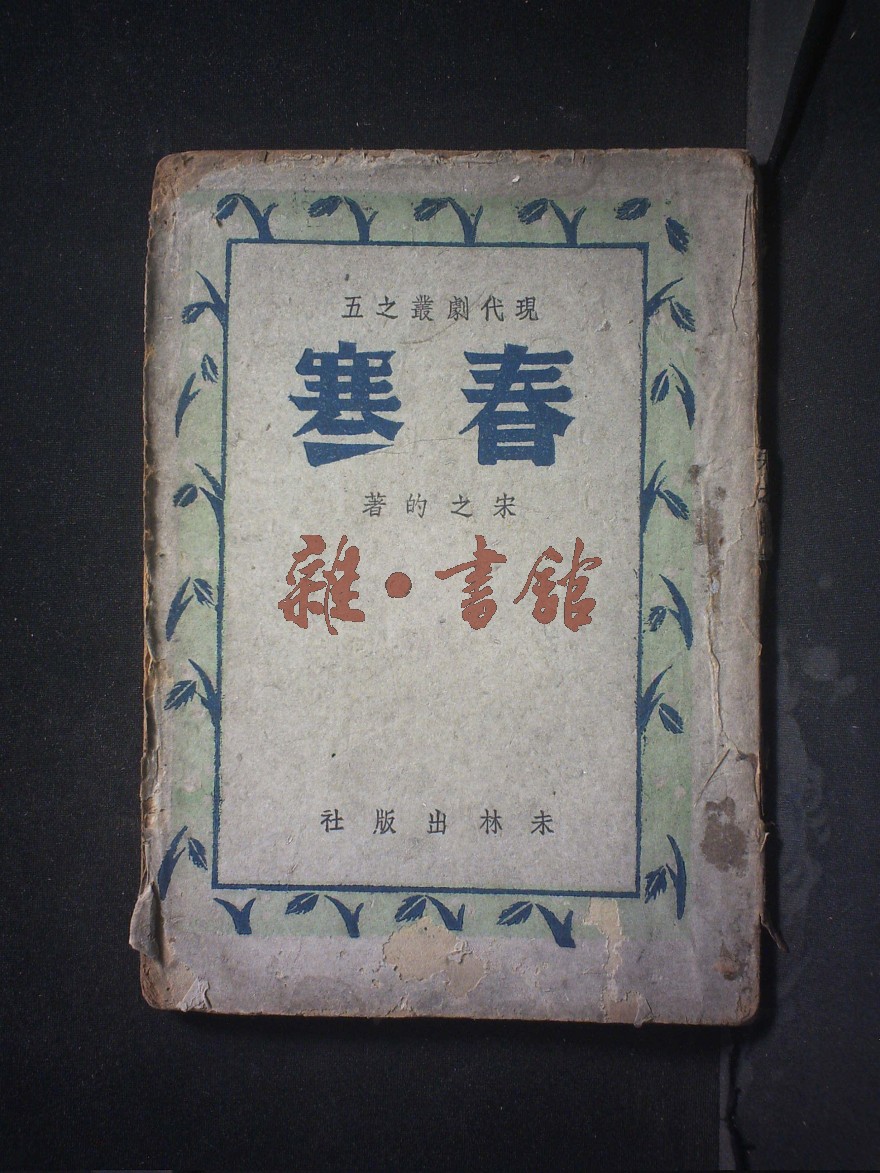 現代劇叢之五
春寒
宋之的著
雜·書館
未林出版社